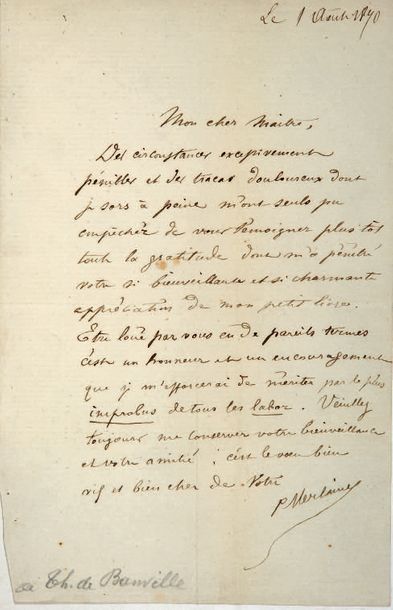 Le 1 Août 1870
Mon cher Maître,
Des circonstances excessivement
pénibles et des tracas douloureux dont
je sors à peine m'ont seuls pu
empêcher de vous témoigner plus tôt
toute la gratitude dont m'a pénétré
votre si bienveillante et si charmante
appréciation de mon petit livre.
Être loué par vous en de pareils termes
c'est un honneur et un encouragement
que je m'efforcerai de mériter par le plus
improbus de tous les labor. Veuillez
toujours me conserver votre bienveillance
et votre amitié ; c'est le vœu bien
vif et bien cher de Votre
P Verlaine
à Th. de Banville